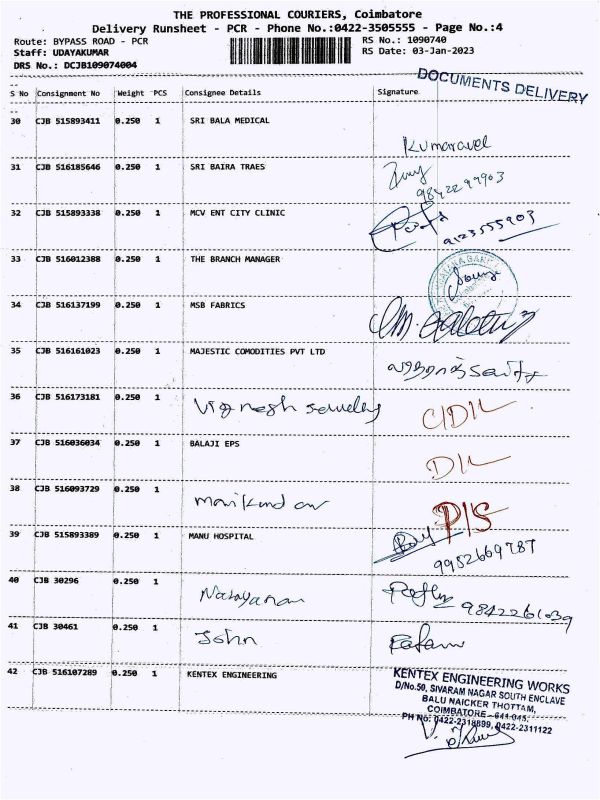 THE PROFESSIONAL COURIERS, Coimbatore
Delivery Runsheet - PCR - Phone No.:0422-3505555 - Page No.:4
Route: BYPASS ROAD - PCR RS No.: 1090740
Staff: UDAYAKUMAR RS Date: 03-Jan-2023
DRS No.: DCJB109074004
DOCUMENTS DELIVERY
S No Consignment No Weight PCS Consignee Details Signature
30 CJB 515893411 0.250 1 SRI BALA MEDICAL
Kumaravel
31 CJB 516185646 0.250 1 SRI BAIRA TRAES
9842299903
32 CJB 515893338 0.250 1 MCV ENT CITY CLINIC
9123555903
33 CJB 516012388 0.250 1 THE BRANCH MANAGER
34 CJB 516137199 0.250 1 MSB FABRICS
35 CJB 516161023 0.250 1 MAJESTIC COMODITIES PVT LTD
36 CJB 516173181 0.250 1 Vignesh C/D/L
37 CJB 516036034 0.250 1 BALAJI EPS
D/L
38 CJB 516093729 0.250 1
Manikandan P/S
39 CJB 515893389 0.250 1 MANU HOSPITAL
9952669787
40 CJB 30296 0.250 1
Narayanan 9842261039
41 CJB 30461 0.250 1
John
42 CJB 516107289 0.250 1 KENTEX ENGINEERING
KENTEX ENGINEERING WORKS
D/No.50, SIVARAM NAGAR SOUTH ENCLAVE
BALU NAICKER THOTTAM,
COIMBATORE - 641 045.
PH No: 0422-2318899, 0422-2311122